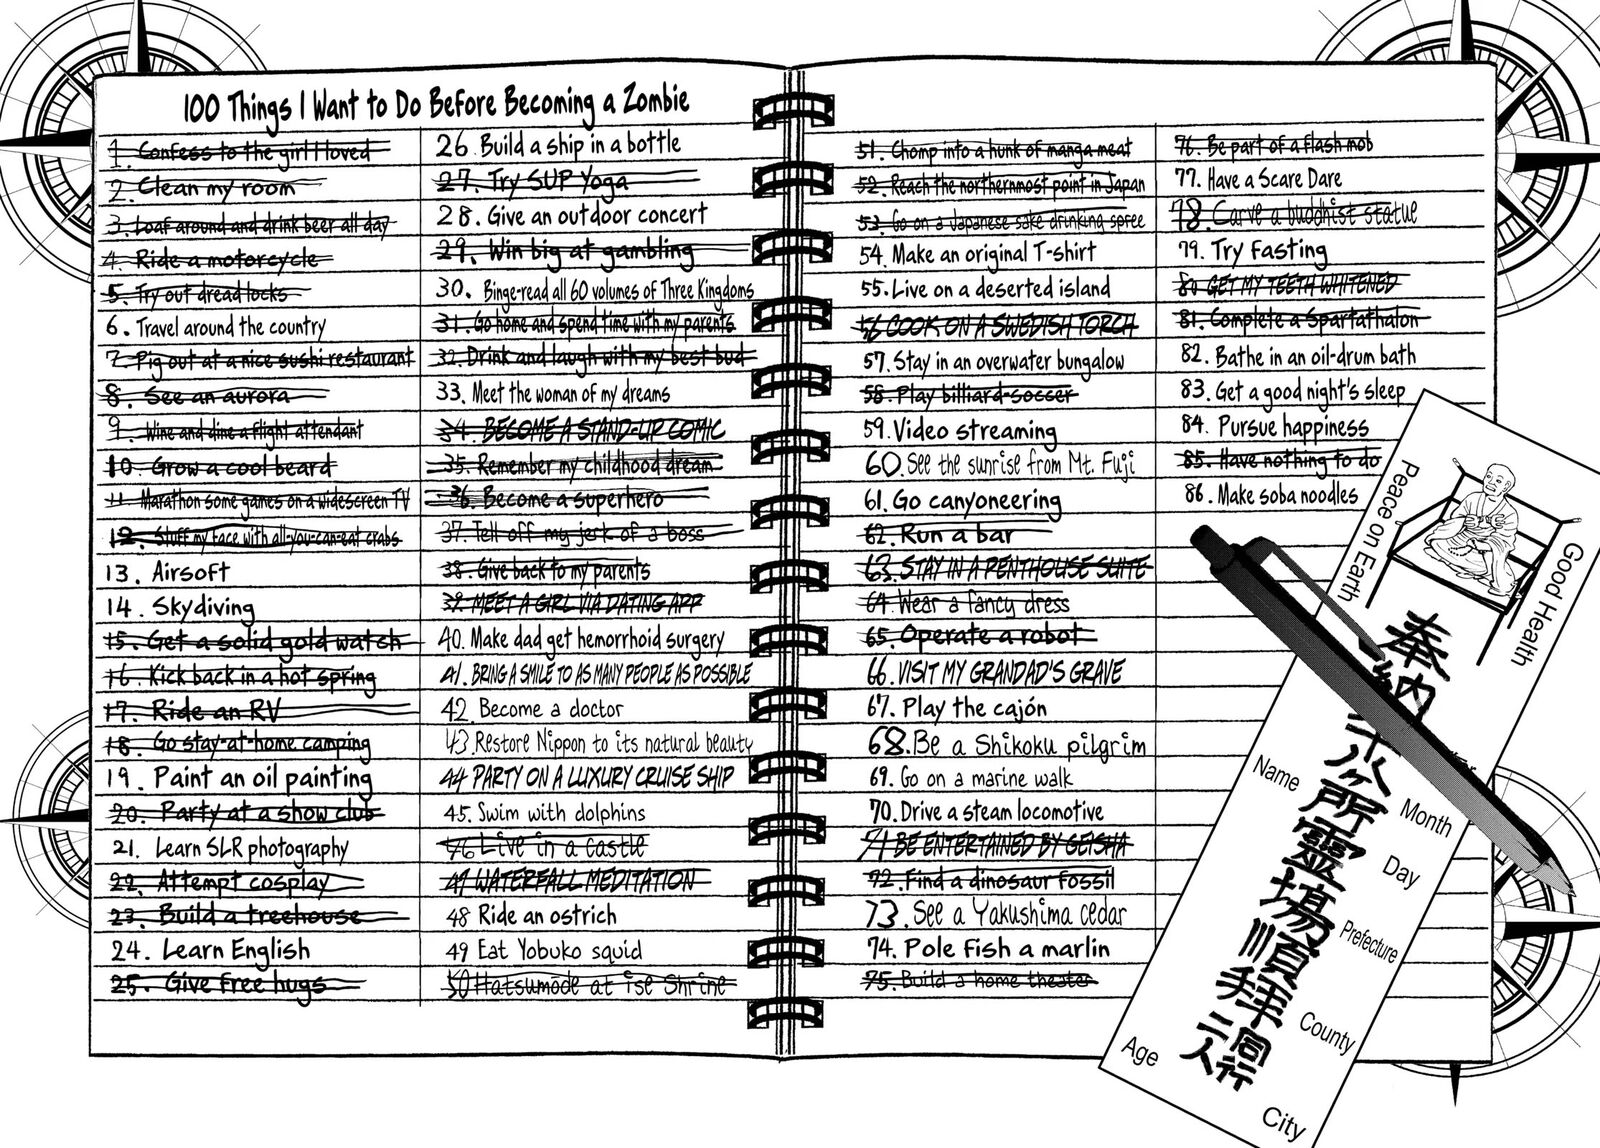 100 Things I Want to Do Before Becoming a Zombie
1. Confess to the girl I loved
2. Clean my room
3. Loaf around and drink beer all day
4. Ride a motorcycle
5. Try out dreadlocks
6. Travel around the country
7. Pig out at a nice sushi restaurant
8. See an aurora
9. Wine and dine a flight attendant
10. Grow a cool beard
11. Marathon some games on a widescreen TV
12. Stuff my face with all-you-can-eat crabs
13. Airsoft
14. Skydiving
15. Get a solid gold watch
16. Kick back in a hot spring
17. Ride an RV
18. Go stay-at-home camping
19. Paint an oil painting
20. Party at a show club
21. Learn SLR photography
22. Attempt cosplay
23. Build a treehouse
24. Learn English
25. Give free hugs
26. Build a ship in a bottle
27. Try SUP Yoga
28. Give an outdoor concert
29. Win big at gambling
30. Binge-read all 60 volumes of Three Kingdoms
31. Go home and spend time with my parents
32. Drink and laugh with my best bud
33. Meet the woman of my dreams
34. BECOME A STAND-UP COMIC
35. Remember my childhood dream
36. Become a superhero
37. Tell off my jerk of a boss
38. Give back to my parents
39. MEET A GIRL VIA DATING APP
40. Make dad get hemorrhoid surgery
41. BRING A SMILE TO AS MANY PEOPLE AS POSSIBLE
42. Become a doctor
43. Restore Nippon to its natural beauty
44 PARTY ON A LUXURY CRUISE SHIP
45. Swim with dolphins
46 Live in a castle
47 WATERFALL MEDITATION
48 Ride an ostrich
49 Eat Yobuko squid
50 Hatsumōde at Ise Shrine
51. Chomp into a hunk of manga meat
52. Reach the northernmost point in Japan
53. Go on a Japanese sake drinking spree
54. Make an original T-shirt
55. Live on a deserted island
56 COOK ON A SWEDISH TORCH
57. Stay in an overwater bungalow
58. Play billiard-soccer
59. Video streaming
60. See the sunrise from Mt. Fuji
61. Go canyoneering
62. Run a bar
63. STAY IN A PENTHOUSE SUITE
64. Wear a fancy dress
65. Operate a robot
66. VISIT MY GRANDAD'S GRAVE
67. Play the cajón
68. Be a Shikoku pilgrim
69. Go on a marine walk
70. Drive a steam locomotive
71 BE ENTERTAINED BY GEISHA
72. Find a dinosaur fossil
73. See a Yakushima cedar
74. Pole fish a marlin
75. Build a home theater
76. Be part of a flash mob
77. Have a Scare Dare
78. Carve a buddhist statue
79. Try fasting
80 GET MY TEETH WHITENED
81. Complete a Spartathalon
82. Bathe in an oil-drum bath
83. Get a good night's sleep
84. Pursue happiness
85. Have nothing to do
86. Make soba noodles
Peace on Earth
Good Health
奉納
ヶ所霊場順拝
同行
二人
Name
Month
Day
Prefecture
County
Age
City